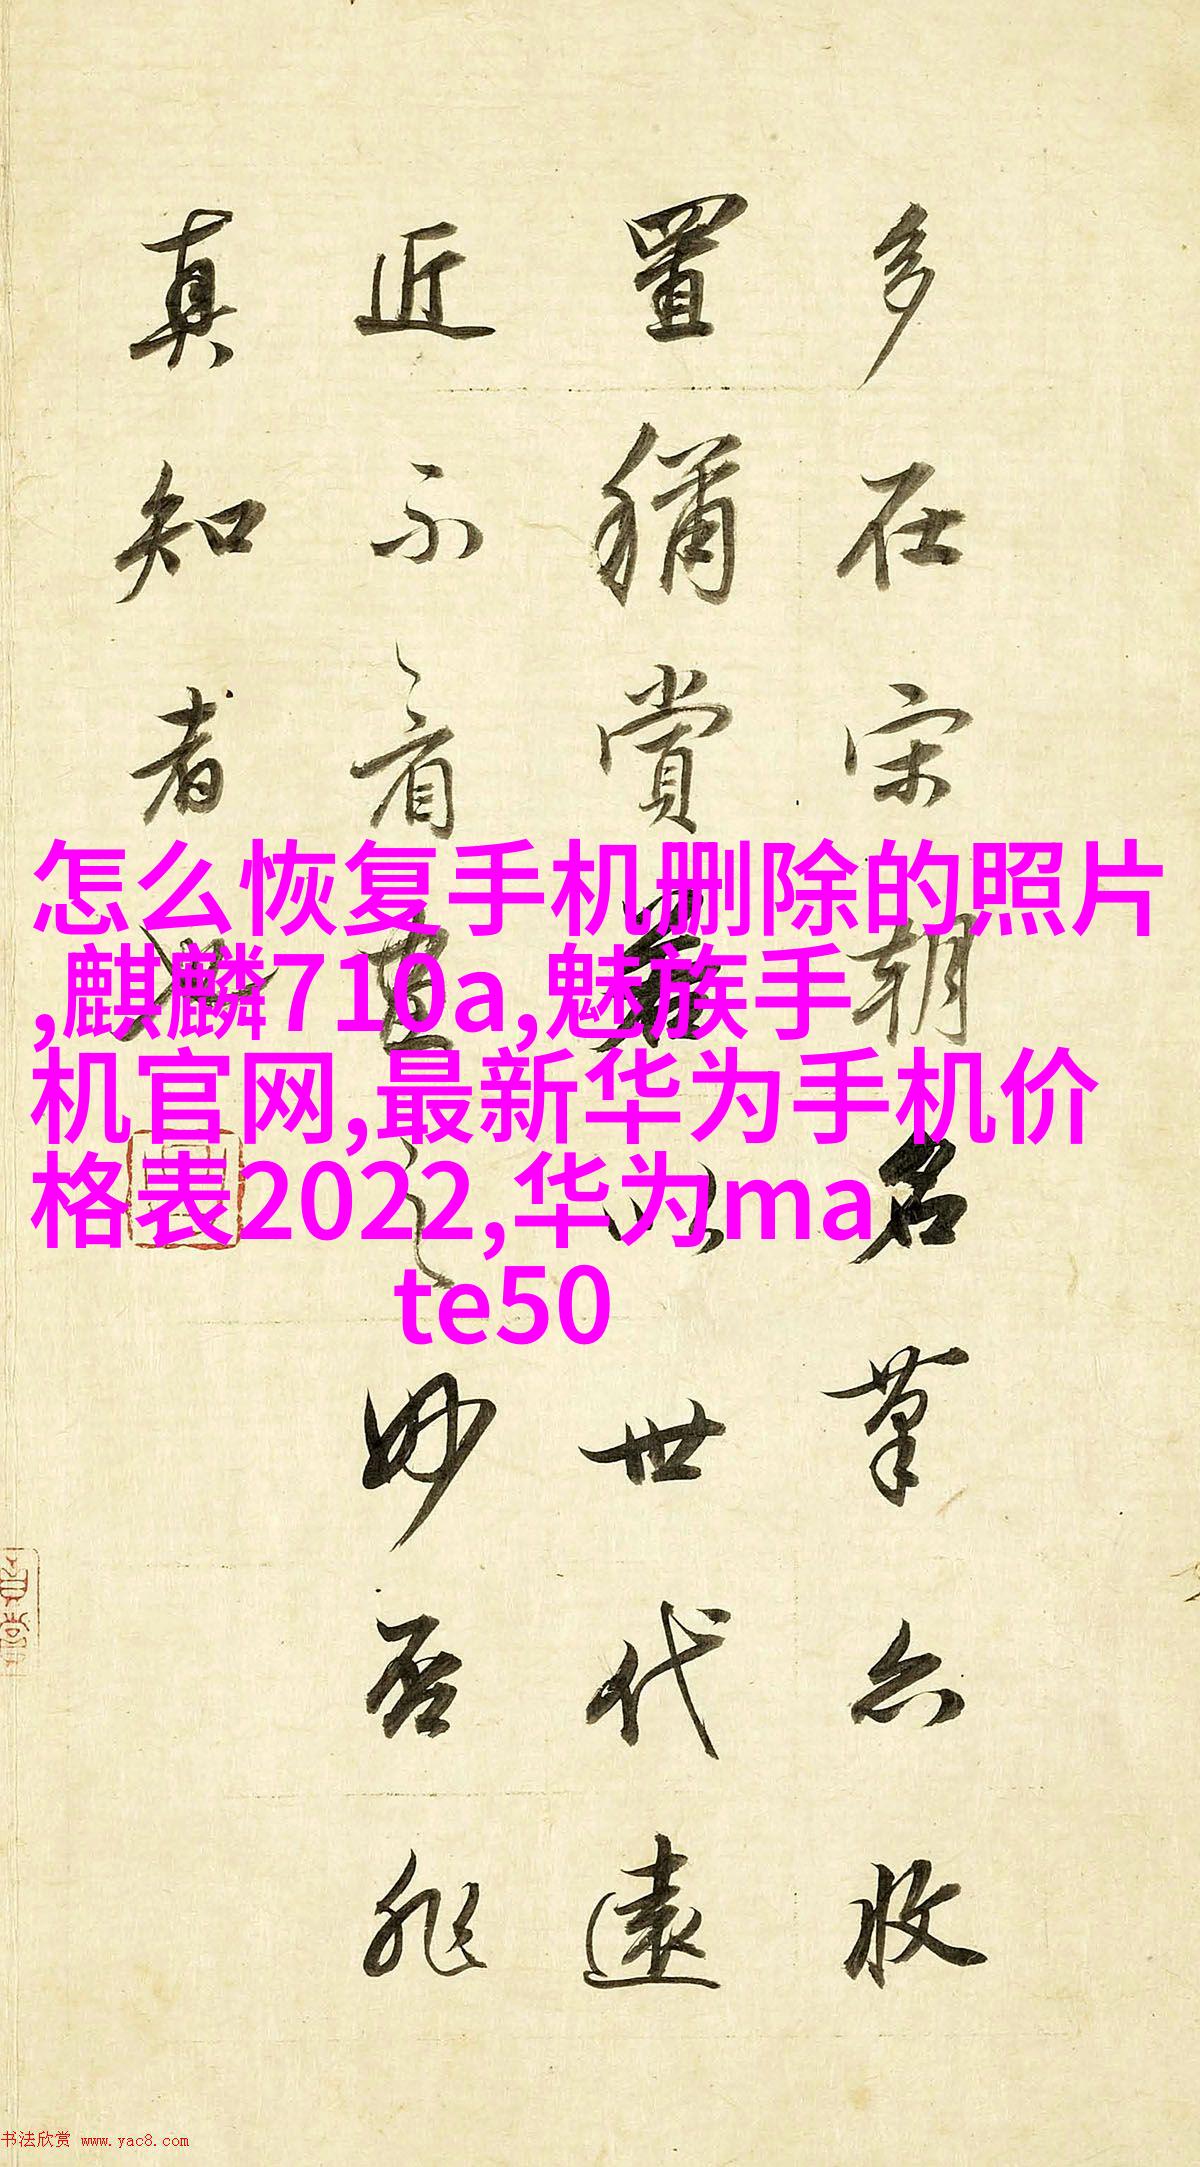 多在宋朝名筆亦收
置猶賞
以世代遠
近不看直之妙否非
真知者
怎么恢复手机删除的照片
,麒麟710a,魅族手
机官网,最新华为手机价
格表2022,华为ma
te50
书法欣赏 www.yac8.com